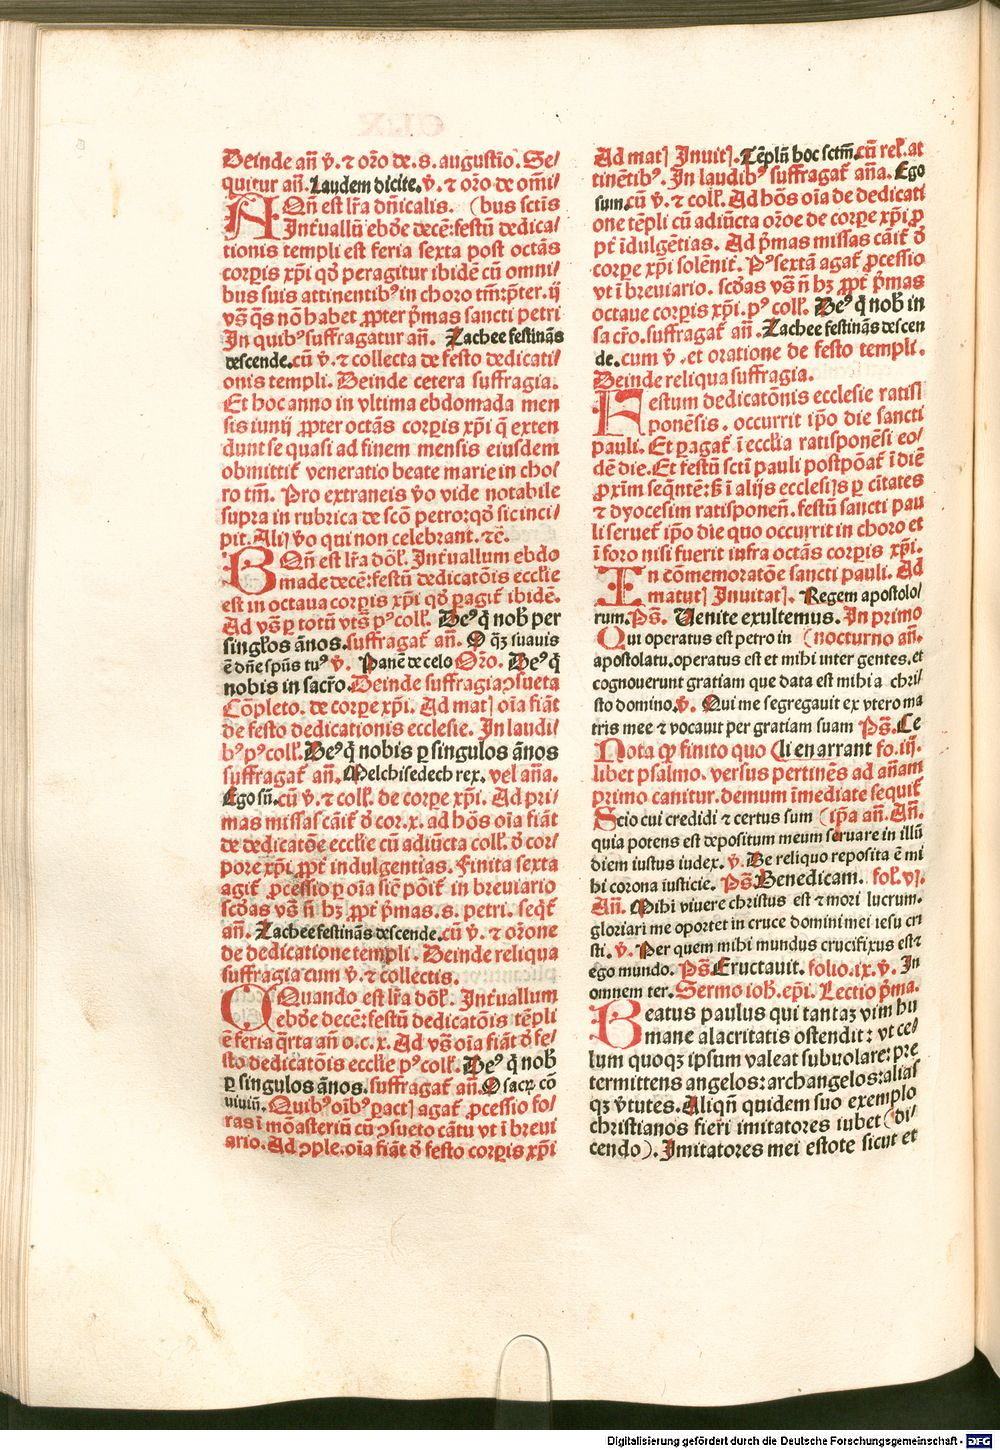 Deinde añ v̄. ⁊ orõ de. s. augustĩo. Se/
quitur añ. Laudem dicite. v̄. ⁊ orõ de om̃i/
AQñ est lr̃a dñicalis. (bus sctis
Int̃uallũ ebd̃e decẽ: festũ dedica/
tionis templi est feria sexta post octãs
corp̱is xp̃i qd̃ peragitur ibidẽ cũ omni/
bus suis attinentibꝰ in choro tm̃: p̱ter. ij
vs̃ q̃s nõ habet ꝓpter p̃mas sancti petri
In quibꝰ suffragatur añ. Zachee festinãs
descende. cũ v̄. ⁊ collecta de festo dedicati/
onis templi. Deinde cetera suffragia.
Et hoc anno in vltima ebdomada men
sis iunij ꝓpter octãs corp̱is xp̃i q̃ exten
dunt se quasi ad finem mensis eiusdem
obmittit̃ veneratio beate marie in cho/
ro tm̃. Pro extraneis v̄o vide notabile
supra in rubrica de scõ petro: qd̃ sic inci/
pit. Alij v̄o qui non celebrant. ⁊c̃.
BQñ est lr̃a dõl̃. Int̃uallum ebdo
made decẽ: festũ dedicatõis eccl̃ie
est in octaua corp̱is xp̃i qd̃ p̱agit̃ ibidẽ.
Ad vs̃ p̱ totũ vts̃ pꝰ coll̃. Deꝰ q̃ nob̃ per
singl̃os ãnos. suffragat̃ añ. O q̃ꝫ suauis
ẽ dñe sp̃us tuꝰ v̄. Panẽ de celo Orõ. Deꝰ q̃
nobis in sacr̃o. Deinde suffragia ꝯsueta
Cõpleto. de corp̱e xp̃i. Ad mat̃ oĩa fiãt
de festo dedicationis ecclesie. In laudi/
bꝰ pꝰ coll̃. Deꝰ q̃ nobis p̱ singulos ãnos
suffragat̃ añ. Melchisedech rex. vel aña.
Ego sũ. cũ v̄. ⁊ coll̃. de corp̱e xp̃i. Ad pri/
mas missas cãit̃ d̃ cor. x. ad hõs oĩa fiãt
de dedicatõe eccl̃ie cũ adiũcta coll̃. d̃ cor/
pore xp̃i ꝓpt̃ indulgentias. Finita sexta
agit̃ ꝓcessio p̱ oĩa sic̃ põit̃ in breuiario
scd̃as vs̃ ñ hꝫ ꝓpt̃ p̃mas. s. petri. seq̃t̃
añ. Zachee festinãs descende. cũ v̄. ⁊ orõne
de dedicatione templi. Deinde reliqua
suffragia cum v̄. ⁊ collectis.
CQuando est lr̃a dõl̃. Int̃uallum
ebd̃e decẽ: festũ dedicatõis tẽpli
ẽ feria q̃rta añ o. c. x. Ad vs̃ oĩa fiãt d̃ fe/
sto dedicatõis eccl̃ie pꝰ coll̃. Deꝰ q̃ nob̃
p̱ singulos ãnos. suffragat̃ añ. O sacꝝ cõ
uiuiũ. Quibꝰ oĩbꝰ p̱act̃ agat̃ ꝓcessio fo/
ras ĩ mõasteriũ cũ ꝯsueto cãtu vt ĩ breui
ario. Ad ꝯple. oĩa fiãt d̃ festo corp̱is xp̃i
Ad mat̃ Inuit̃. Tẽplũ hoc sctm̃. cũ rel̃. at
tinẽtibꝰ. In laudibꝰ suffragat̃ aña. Ego
sum. cũ v̄. ⁊ coll̃. Ad hõs oĩa de dedicati
one tẽpli cũ adiũcta orõe de corp̱e xp̃i ꝓ
pt̃ ĩdulgẽtias. Ad p̃mas missas cãit̃ d̃
corp̱e xp̃i solẽnit̃. Pꝰ sextã agat̃ ꝓcessio
vt ĩ breuiario. scd̃as vs̃ ñ hꝫ ꝓpt̃ p̃mas
octaue corp̱is xp̃i. pꝰ coll̃. Deꝰ q̃ nob̃ in
sacr̃o. suffragat̃ añ. Zachee festinãs descen
de. cum v̄. et oratione de festo templi.
Deinde reliqua suffragia.
Festum dedicatõnis ecclesie ratisi
ponẽsis. occurrit ip̃o die sancti
pauli. Et p̱agat̃ ĩ eccl̃ia ratisponẽsi eo/
dẽ die. Et festũ scti pauli postpõat̃ ĩ diẽ
ꝓxim̃ seq̃ntẽ: s̃ ĩ alijs ecclesijs p̱ cĩtates
⁊ dyocesim ratisponeñ. festũ sancti pau
li seruet̃ ip̃o die quo occurrit in choro et
ĩ foro nisi fuerit infra octãs corp̱is xp̃i.
In cõmemoratõe sancti pauli. Ad
matut̃ Inuitat̃. Regem apostolo/
rum. Ps̃. Uenite exultemus. In primo
Qui operatus est petro in (nocturno añ.
apostolatu. operatus est et mihi inter gentes. et
cognouerunt gratiam que data est mihi a chri/
sto domino. v̄. Qui me segregauit ex vtero ma
tris mee ⁊ vocauit per gratiam suam Ps̃. Ce
Nota ꝙ finito quo (li enarrant fo. iij.
libet psalmo. versus pertinẽs ad añam
primo canitur. demum ĩmediate sequit̃
Scio cui credidi ⁊ certus sum (ip̃a añ. Añ.
quia potens est depositum meum seruare in illũ
diem iustus iudex. v̄. De reliquo reposita ẽ mi
hi corona iusticie. Ps̃. Benedicam. fol̃. vj.
Añ. Mihi viuere christus est ⁊ mori lucrum.
gloriari me oportet in cruce domini mei iesu cri
sti. v̄. Per quem mihi mundus crucifixus est ⁊
ego mundo. Ps̃. Eructauit. folio. ix. v̄. In
omnem ter. Sermo ioh̃. ep̃i. Lectio p̃ma.
Beatus paulus qui tantaꝫ vim hu
mane alacritatis ostendit: vt ce/
lum quoqꝫ ipsum valeat subuolare: pre
termittens angelos: archangelos: alias
qꝫ v̄tutes. Aliqñ quidem suo exemplo
christianos fieri imitatores iubet (di/
cendo). Imitatores mei estote sicut et
Digitalisierung gefördert durch die Deutsche Forschungsgemeinschaft - DFG